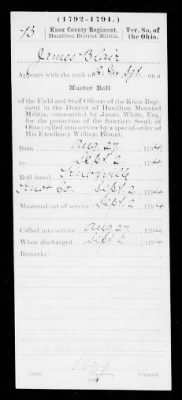 (1792-1794.)
B
Knox County Regiment,
Hamilton District Militia.
Ter. So. of
the Ohio.
James Blair
Appears with the rank of on a
Muster Roll
of the Field and Staff Officers of the Knox Regi-
ment in the District of Hamilton Mounted
Militia, commanded by James White, Esq.,
for the protection of the frontiers South of
Ohio; called into service by a special order of
His Excellency William Blount,
from Aug 27, 1794
to Sept. 2, 1794
Roll dated Knoxville
Knox Co. Sept. 2, 1794
Mustered out of service Sept. 2, 1794
Called into service Aug. 27, 1794
When discharged Sept. 2, 1794
Remarks:
Copyist.